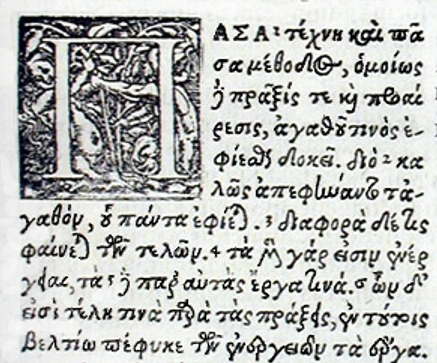 ΠΑΣΑ 1 τέχνη καὶ πᾶ
σα μέθοδος, ὁμοίως
δὲ πρᾶξίς τε καὶ προαί
ρεσις, ἀγαθοῦ τινὸς ἐ-
φίεσθαι δοκεῖ. διὸ 2 κα
λῶς ἀπεφήναντο τἀ-
γαθὸν, οὗ πάντα ἐφίεται. 3 διαφορὰ δέ τις
φαίνεται τῶν τελῶν. 4 τὰ μὲν γάρ εἰσιν ἐνέρ
γειαι, τὰ 5 δὲ παρ' αὐτὰς ἔργα τινά. 6 ὧν δ'
εἰσὶ τέλη τινὰ παρὰ τὰς πράξεις, ἐν τούτοις
βελτίω πέφυκε τῶν ἐνεργειῶν τὰ ἔργα.